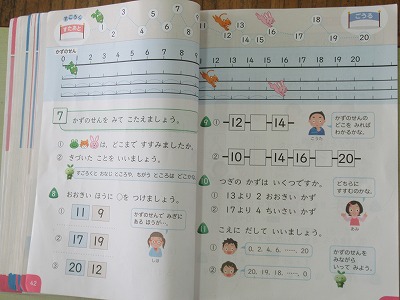 すごろく
すたあと
ごうる
12 13 14 15 16 17 18 19 20
かずのせん
0 1 2 3 4 5 6 7 8 9
11 12 13 14 15 16 17 18 19 20
7
かずのせんを みて こたえましょう。
① は、どこまで すすみましたか。
② きづいた ことを いいましょう。
すごろくと おなじ ところや、ちがう ところは どこかな。
8 おおきい ほうに ○を つけましょう。
① 11 9
② 17 19
③ 20 12
かずのせんで みぎに
ある ほうが…。
しほ
62
9 ① 12 14
② 10 14 16 20
かずのせんの
どこを みれば
わかるかな。
10 つぎの かずは いくつですか。
① 13より 2 おおきい かず
② 17より 4 ちいさい かず
どちらに
すすむのかな。
あみ
11 こえに だして いいましょう。
① 0、2、4、6、……、20
② 20、19、18、……、0
かずのせんを
みながら
いって みよう。